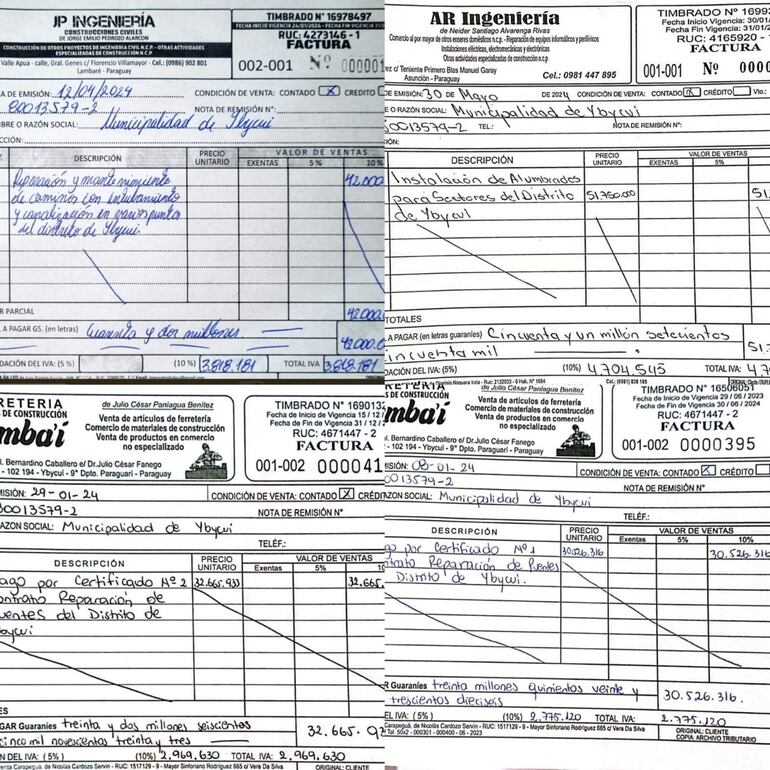 JP INGENIERÍA
CONSTRUCCIONES CIVILES
DE JORGE EMILIO PEDROZO ALARCON
CONSTRUCCIÓN DE OTROS PROYECTOS DE INGENIERÍA CIVIL N.C.P - OTRAS ACTIVIDADES
ESPECIALIZADAS DE CONSTRUCCIÓN N.C.P
Valle Apua - calle, Gral. Genes c/ Florencio Villamayor - Cel.: (0986) 902 801
Lambaré - Paraguay
TIMBRADO N° 16978497
FECHA INICIO VIGENCIA 24/01/2024 - FECHA FIN VIGENCIA
RUC: 4273146 - 1
FACTURA
002-001 N° 00000
DE EMISIÓN: 12/04/2024 CONDICIÓN DE VENTA: CONTADO X CRÉDITO
80013579-2 NOTA DE REMISIÓN N°:
BRE O RAZÓN SOCIAL: Municipalidad de Ybycui
CCIÓN:
DESCRIPCIÓN PRECIO UNITARIO VALOR DE VENTAS
EXENTAS 5 % 10%
Reparación y mantenimiento 42.000.
de caminos con entubamiento
y canalización en varios puntos
del distrito de Ybycui.
R PARCIAL 42.000.
L A PAGAR GS. (en letras) Cuarenta y dos millones 42.000.
DACIÓN DEL IVA: (5 %) (10 %) 3.818.181 TOTAL IVA 3.818.181
AR Ingeniería
de Neider Santiago Alvarenga Rivas
Comercio al por mayor de otros enseres domésticos n.c.p. - Reparación de equipos informáticos y periféricos
Instalaciones eléctricas, electromecánicas y electrónicas
Otras actividades especializadas de construcción n.c.p
ez c/ Teniente Primero Blas Manuel Garay
Asunción - Paraguay
Cel.: 0981 447 895
TIMBRADO N° 1699
Fecha Inicio Vigencia: 30/01/
Fecha Fin Vigencia: 31/01/
RUC: 4165920 -
FACTURA
001-001 N° 000
EMISIÓN: 30 de Mayo DE 2024 CONDICIÓN DE VENTA: CONTADO X CRÉDITO Vto.:
E O RAZÓN SOCIAL: Municipalidad de Ybycui
0013579-2 TEL: NOTA DE REMISIÓN N°:
IÓN:
DESCRIPCIÓN PRECIO UNITARIO VALOR DE VENTAS
EXENTAS 5%
Instalación de Alumbrados
para Sectores del Distrito 51.750.000 51.
de Ybycui
TOTALES
A PAGAR (en letras guaraníes) Cincuenta y un millón setecientos
incuenta mil 51.7
DACIÓN DEL IVA: (5%) (10%) 4.704.545 TOTAL IVA: 4.7
RETERIA
S DE CONSTRUCCIÓN
mba'i
de Julio César Paniagua Benítez
Venta de artículos de ferretería
Comercio de materiales de construcción
Venta de productos en comercio
no especializado
l. Bernardino Caballero e/ Dr.Julio César Fanego
- 102 194 - Ybycuí - 9° Dpto. Paraguarí - Paraguay
TIMBRADO N° 1690132
Fecha de Inicio de Vigencia 15 / 12 /
Fecha de Fin de Vigencia 31 / 12 /
RUC: 4671447 - 2
FACTURA
001-002 000041
MISIÓN: 29-01-24 CONDICIÓN DE VENTA: CONTADO X CRÉDI
0013579-2 NOTA DE REMISIÓN N°:
RAZON SOCIAL: Municipalidad de Ybycui
TELÉF.:
DESCRIPCIÓN PRECIO UNITARIO VALOR DE VENTAS
Exentas 5% 10
ago por Certificado N°2 32.665.933 32.665.
ontrato Reparación de
uentes del Distrito de
bycui
ES
GAR Guaraníes treinta y dos millones seiscientos 32.665.9
cinco mil novecientos treinta y tres
N DEL IVA: (5%) (10%) 2.969.630 TOTAL IVA: 2.969.630
arapeguá. de Nicolás Cardozo Servín - RUC: 1517129 - 9 - Mayor Sinforiano Rodríguez 665 c/ Vera Da Silva
ORIGINAL: CLIENTE
RETERIA
S DE CONSTRUCCIÓN
mba'i
de Julio César Paniagua Benítez
Venta de artículos de ferretería
Comercio de materiales de construcción
Venta de productos en comercio
no especializado
l. Bernardino Caballero e/ Dr.Julio César Fanego
- 102 194 - Ybycuí - 9° Dpto. Paraguarí - Paraguay
TIMBRADO N° 16506051
Fecha de Inicio de Vigencia 29 / 06 / 2023
Fecha de Fin de Vigencia 30 / 06 / 2024
RUC: 4671447 - 2
FACTURA
001-002 0000395
MISIÓN: 08-01-24 CONDICIÓN DE VENTA: CONTADO X CRÉDITO
0013579-2 NOTA DE REMISIÓN N°:
RAZON SOCIAL: Municipalidad de Ybycui
TELÉF.:
DESCRIPCIÓN PRECIO UNITARIO VALOR DE VENTAS
Exentas 5% 10%
go por Certificado N°1 30.526.316 30.526.316
ntrato Reparación de Puentes
Distrito de Ybycui.
AR Guaraníes treinta millones quinientos veinte y 30.526.316.
trescientos dieciseis
EL IVA: (5%) (10%) 2.775.120 TOTAL IVA: 2.775.120
Carapeguá, de Nicolás Cardozo Servín - RUC: 1517129 - 9 - Mayor Sinforiano Rodríguez 665 c/ Vera Da Silva
ORIGINAL: CLIENTE
COPIA: ARCHIVO TRIBUTARIO